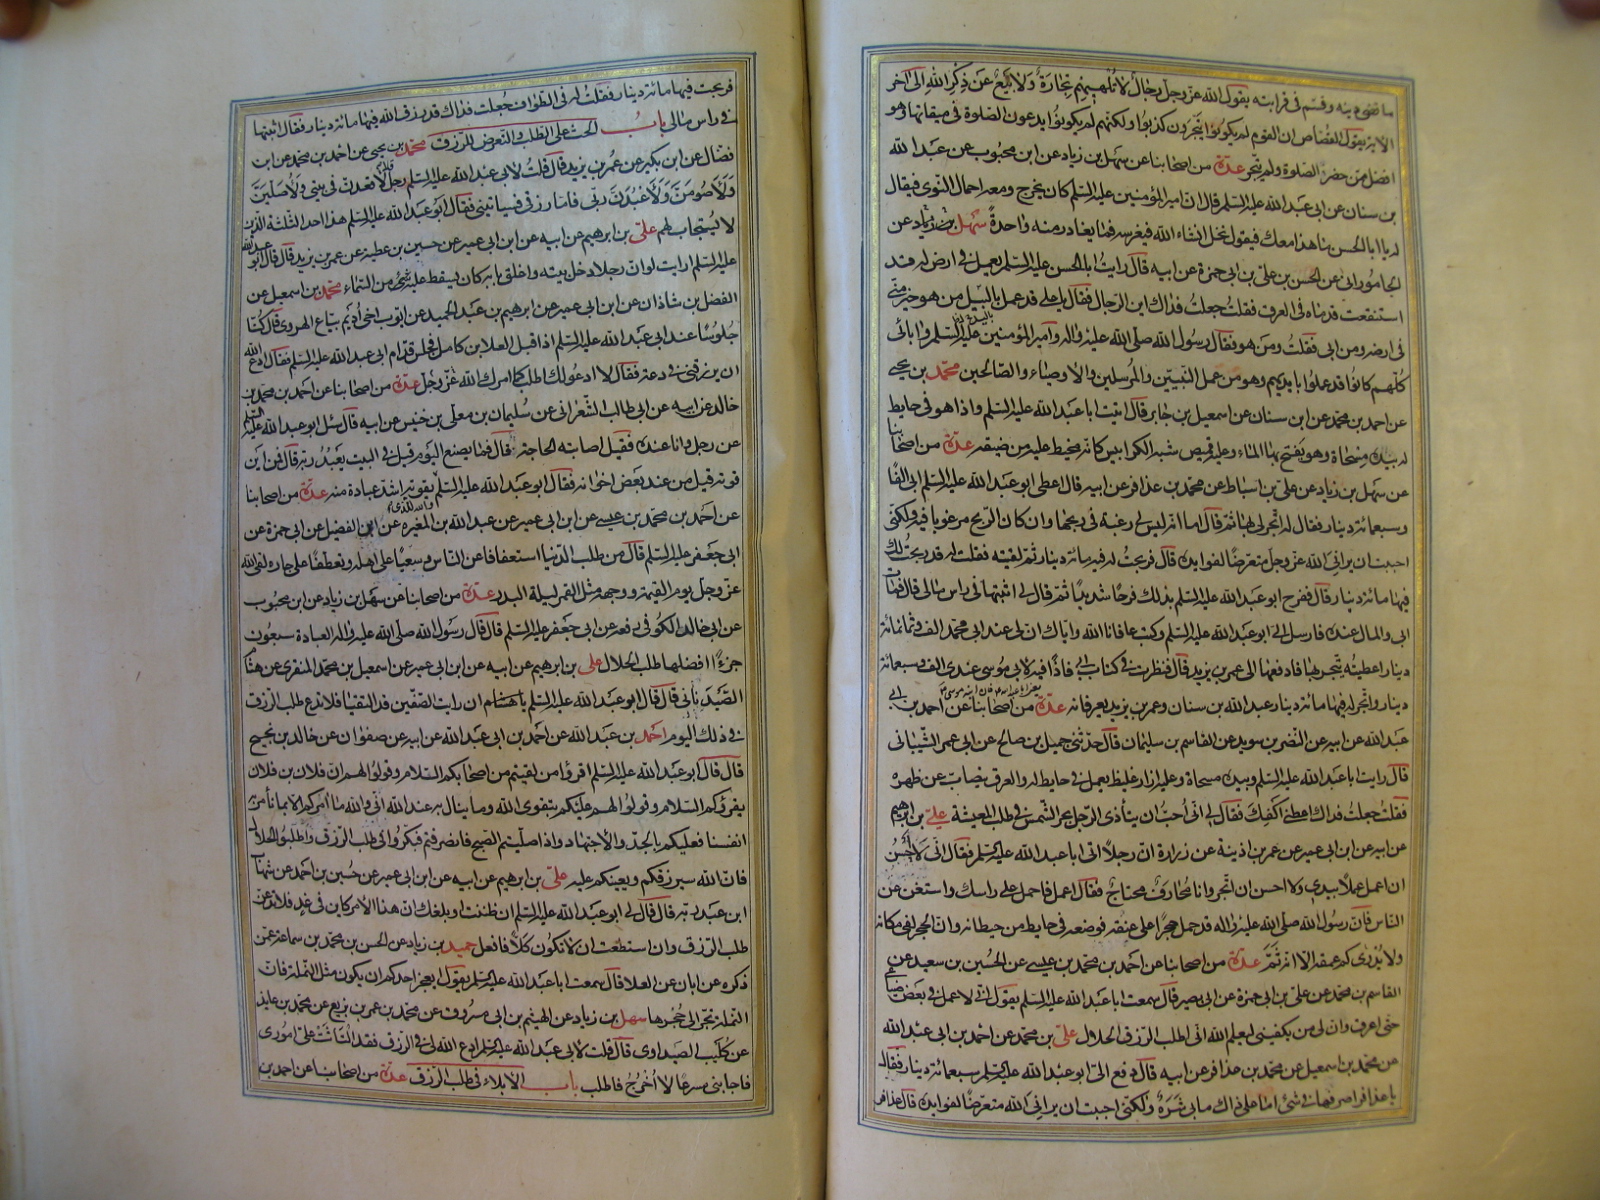 ما تضوم به وقسم في قرابته يقول الله عز وجل رجال لا تلهيهم تجارة ولا بيع عن ذكر الله الى اخر
الاية يقول القصاص ان القوم لم يكونوا يتجرون كذبوا ولكنهم لم يكونوا يدعون الصلوة في ميقاتها وهو
افضل ممن حضر الصلوة ولم يتجر عدة من اصحابنا عن سهل بن زياد عن ابن محبوب عن عبد الله
بن سنان عن ابى عبد الله عليه السلم قال ان امير المؤمنين عليه السلم كان يخرج ومعه احمال النوى فيقال
له يا ابا الحسن ما هذا معك فيقول نخل انشاء الله فيغرسه فما يغادر منه واحدة سهل بن زياد عن
الجامورانى عن الحسن بن على بن ابى حمزة عن ابيه قال رايت ابا الحسن عليه السلم يعمل في ارض له قد
استنقعت قدماه في العرق فقلت جعلت فداك اين الرجال فقال يا على قد عمل بالبيل من هو خير منى
في ارضه ومن ابى فقلت ومن هو فقال رسول الله صلى الله عليه واله وامير المؤمنين عليه السلم واباى
كلهم كانوا قد عملوا بايديهم وهو من عمل النبيين والمرسلين والاوصياء والصالحين محمد بن يحيى
عن احمد بن محمد عن ابن سنان عن اسمعيل بن جابر قال اتيت ابا عبد الله عليه السلم واذا هو في حايط
له بيده مسحاة وهو يفتح بها الماء وعليه قميص شبه الكرابيس كانه مخيط عليه من ضيقه عدة من اصحابنا
عن سهل بن زياد عن على بن اسباط عن محمد بن عذافر عن ابيه قال اعطى ابو عبد الله عليه السلم ابى الفا
وسبعمائة دينار فقال له اتجر لى بها ثم قال اما انه ليس لى رغبة في ربحها وان كان الربح مرغوبا فيه ولكنى
احببت ان يرانى الله عز وجل متعرضا لفوايده قال فربحت له فيه مائة دينار ثم لقيته فقلت له قد ربحت لك
فيها مائة دينار قال ففرح ابو عبد الله عليه السلم بذلك فرحا شديدا ثم قال لى اثبتها في راس مالى قال فمات
ابى والمال عنده فارسل الى ابو عبد الله عليه السلم وكتب عافانا الله واياك ان لى عند ابى محمد الف وثمانمائة
دينار اعطيته يتجر بها فادفعها الى عمر بن يزيد قال فنظرت في كتاب ابى فاذا فيه لابى موسى عندى الف وسبعمائة
دينار واتجر له فيها مائة دينار عبد الله بن سنان وعمر بن يزيد يعرفانه عدة من اصحابنا عن احمد بن ابى
عبد الله عن ابيه عن النضر بن سويد عن القاسم بن سليمان قال حدثنى جميل بن صالح عن ابى عمر الشيبانى
قال رايت ابا عبد الله عليه السلم وبيده مسحاة وعليه ازار غليظ يعمل في حايط له والعرق يتصاب عن ظهره
فقلت جعلت فداك اعطنى اكفيك فقال لى انى احب ان يتأذى الرجل بحر الشمس في طلب المعيشة على بن ابرهيم
عن ابيه عن ابن ابى عمير عن عمر بن اذينة عن زرارة ان رجلا اتى ابا عبد الله عليه السلم فقال انى لا احسن
ان اعمل عملا بيدى ولا احسن ان اتجر وانا محارف محتاج فقال اعمل فاحمل على راسك واستغن عن
الناس فان رسول الله صلى الله عليه واله قد حمل حجرا على عنقه فوضعه في حايط من حيطانه وان الحجر لفى مكانه
ولا يدرى كم عمقه الا انه ثم عدة من اصحابنا عن احمد بن محمد بن عيسى عن الحسين بن سعيد عن
القاسم بن محمد عن على بن ابى حمزة عن ابى بصير قال سمعت ابا عبد الله عليه السلم يقول انى لاعمل في بعض ضياعى
حتى اعرق وان لى من يكفينى ليعلم الله انى اطلب الرزق الحلال على بن محمد عن احمد بن ابى عبد الله
عن محمد بن اسمعيل عن محمد بن عذافر عن ابيه قال دفع الى ابو عبد الله عليه السلم سبعمائة دينار فقال
يا عذافر اصرفها في شئ اما على ذاك ما بى شره ولكنى احببت ان يرانى الله متعرضا لفوايده قال عذافر
فربحت فيها مائة دينار فقلت له في الطواف جعلت فداك قد رزق الله فيها مائة دينار فقال اثبتها
في راس مالى باب الحث على الطلب والتعرض للرزق محمد بن يحيى عن احمد بن محمد عن ابن
فضال عن ابن بكير عن عمر بن يزيد قال قلت لابى عبد الله عليه السلم رجل قال لاقعدن في بيتى ولاصلين
ولاصومن ولاعبدن ربى فاما رزقى فسياتينى فقال ابو عبد الله عليه السلم هذا احد الثلثة الذين
لا يستجاب لهم على بن ابرهيم عن ابيه عن ابن ابى عمير عن حسين بن عطية عن عمر بن يزيد قال قال ابو عبد الله
عليه السلم ارايت لو ان رجلا دخل بيته واغلق بابه كان يسقط عليه شئ من السماء محمد بن اسمعيل عن
الفضل بن شاذان عن ابن ابى عمير عن ابرهيم بن عبد الحميد عن ايوب اخى اديم بياع الهروى قال كنا
جلوسا عند ابى عبد الله عليه السلم اذ اقبل العلا بن كامل فجلس قدام ابى عبد الله عليه السلم فقال ادع الله
ان يرزقنى في دعة فقال لا ادعو لك اطلب كما امرك الله عز وجل عدة من اصحابنا عن احمد بن محمد بن
خالد عن ابيه عن ابى طالب الشعرانى عن سليمان بن معلى بن خنيس عن ابيه قال سئل ابو عبد الله عليه السلم
عن رجل وانا عنده فقيل اصابته الحاجة قال فما يصنع اليوم قيل في البيت يعبد ربه قال فمن اين
قوته قيل من عند بعض اخوانه فقال ابو عبد الله عليه السلم والله للذى يقوته اشد عبادة منه عدة من اصحابنا
عن احمد بن محمد بن عيسى عن ابن ابى عمير عن عبد الله بن المغيرة عن ابن الفضيل عن ابى حمزة عن
ابى جعفر عليه السلم قال من طلب الدنيا استعفافا عن الناس وسعيا على اهله وتعطفا على جاره لقى الله
عز وجل يوم القيمة ووجهه مثل القمر ليلة البدر عدة من اصحابنا عن سهل بن زياد عن ابن محبوب
عن ابى خالد الكوفى رفعه عن ابى جعفر عليه السلم قال قال رسول الله صلى الله عليه واله العبادة سبعون
جزءا افضلها طلب الحلال على بن ابرهيم عن ابيه عن ابن ابى عمير عن اسمعيل بن محمد المنقرى عن هشام
الصيدنانى قال قال ابو عبد الله عليه السلم يا هشام ان رايت الصفين قد التقيا فلا تدع طلب الرزق
في ذلك اليوم احمد بن عبد الله عن احمد بن ابى عبد الله عن ابيه عن صفوان عن خالد بن نجيح
قال قال ابو عبد الله عليه السلم اقرؤا من لقيتم من اصحابكم السلام وقولوا لهم ان فلان بن فلان
يقرؤكم السلام وقولوا لهم عليكم بتقوى الله وما ينال به عند الله انى والله ما امركم الا بما نأمر به
انفسنا فعليكم بالجد والاجتهاد واذا صليتم الصبح فانصرفتم فبكروا في طلب الرزق واطلبوا الحلال
فان الله سيرزقكم ويعينكم عليه على بن ابرهيم عن ابيه عن ابن ابى عمير عن حسين بن احمد عن شهاب
ابن عبد ربه قال قال لى ابو عبد الله عليه السلم ان ظننت او بلغك ان هذا الامر كاين في غد فلا تدعن
طلب الرزق وان استطعت ان لا تكون كلا فافعل حميد بن زياد عن الحسن بن محمد بن سماعة عمن
ذكره عن ابان عن العلا قال سمعت ابا عبد الله عليه السلم يقول ايعجز احدكم ان يكون مثل النملة فان
النملة تجر الى جحرها سهل بن زياد عن الهيثم بن ابى مسروق عن محمد بن عمر بن بزيع عن محمد بن عايذ
عن كليب الصيداوى قال قلت لابى عبد الله عليه السلم ادع الله لى في الرزق فقد التاثت على امورى
فاجابنى مسرعا لا اخرج فاطلب باب الابلاء في طلب الرزق عدة من اصحابنا عن احمد بن